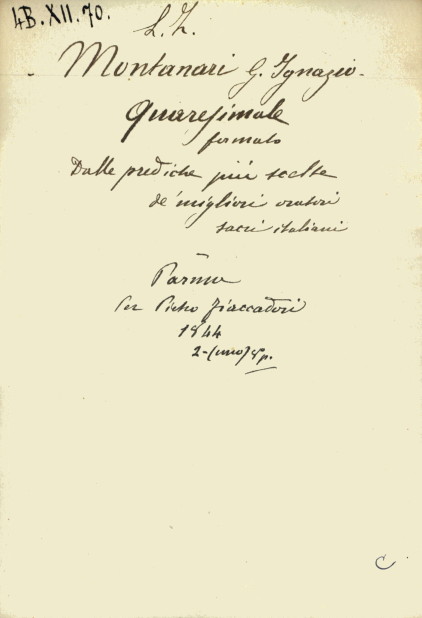 4B.XII.70.
L. Z.
Montanari G. Ignazio.
Quaresimale
formato
Dalle prediche più scelte
de' migliori oratori
sacri italiani
Parma
Per Pietro Fiaccadori
1844
2-(uno) 8º p.
C